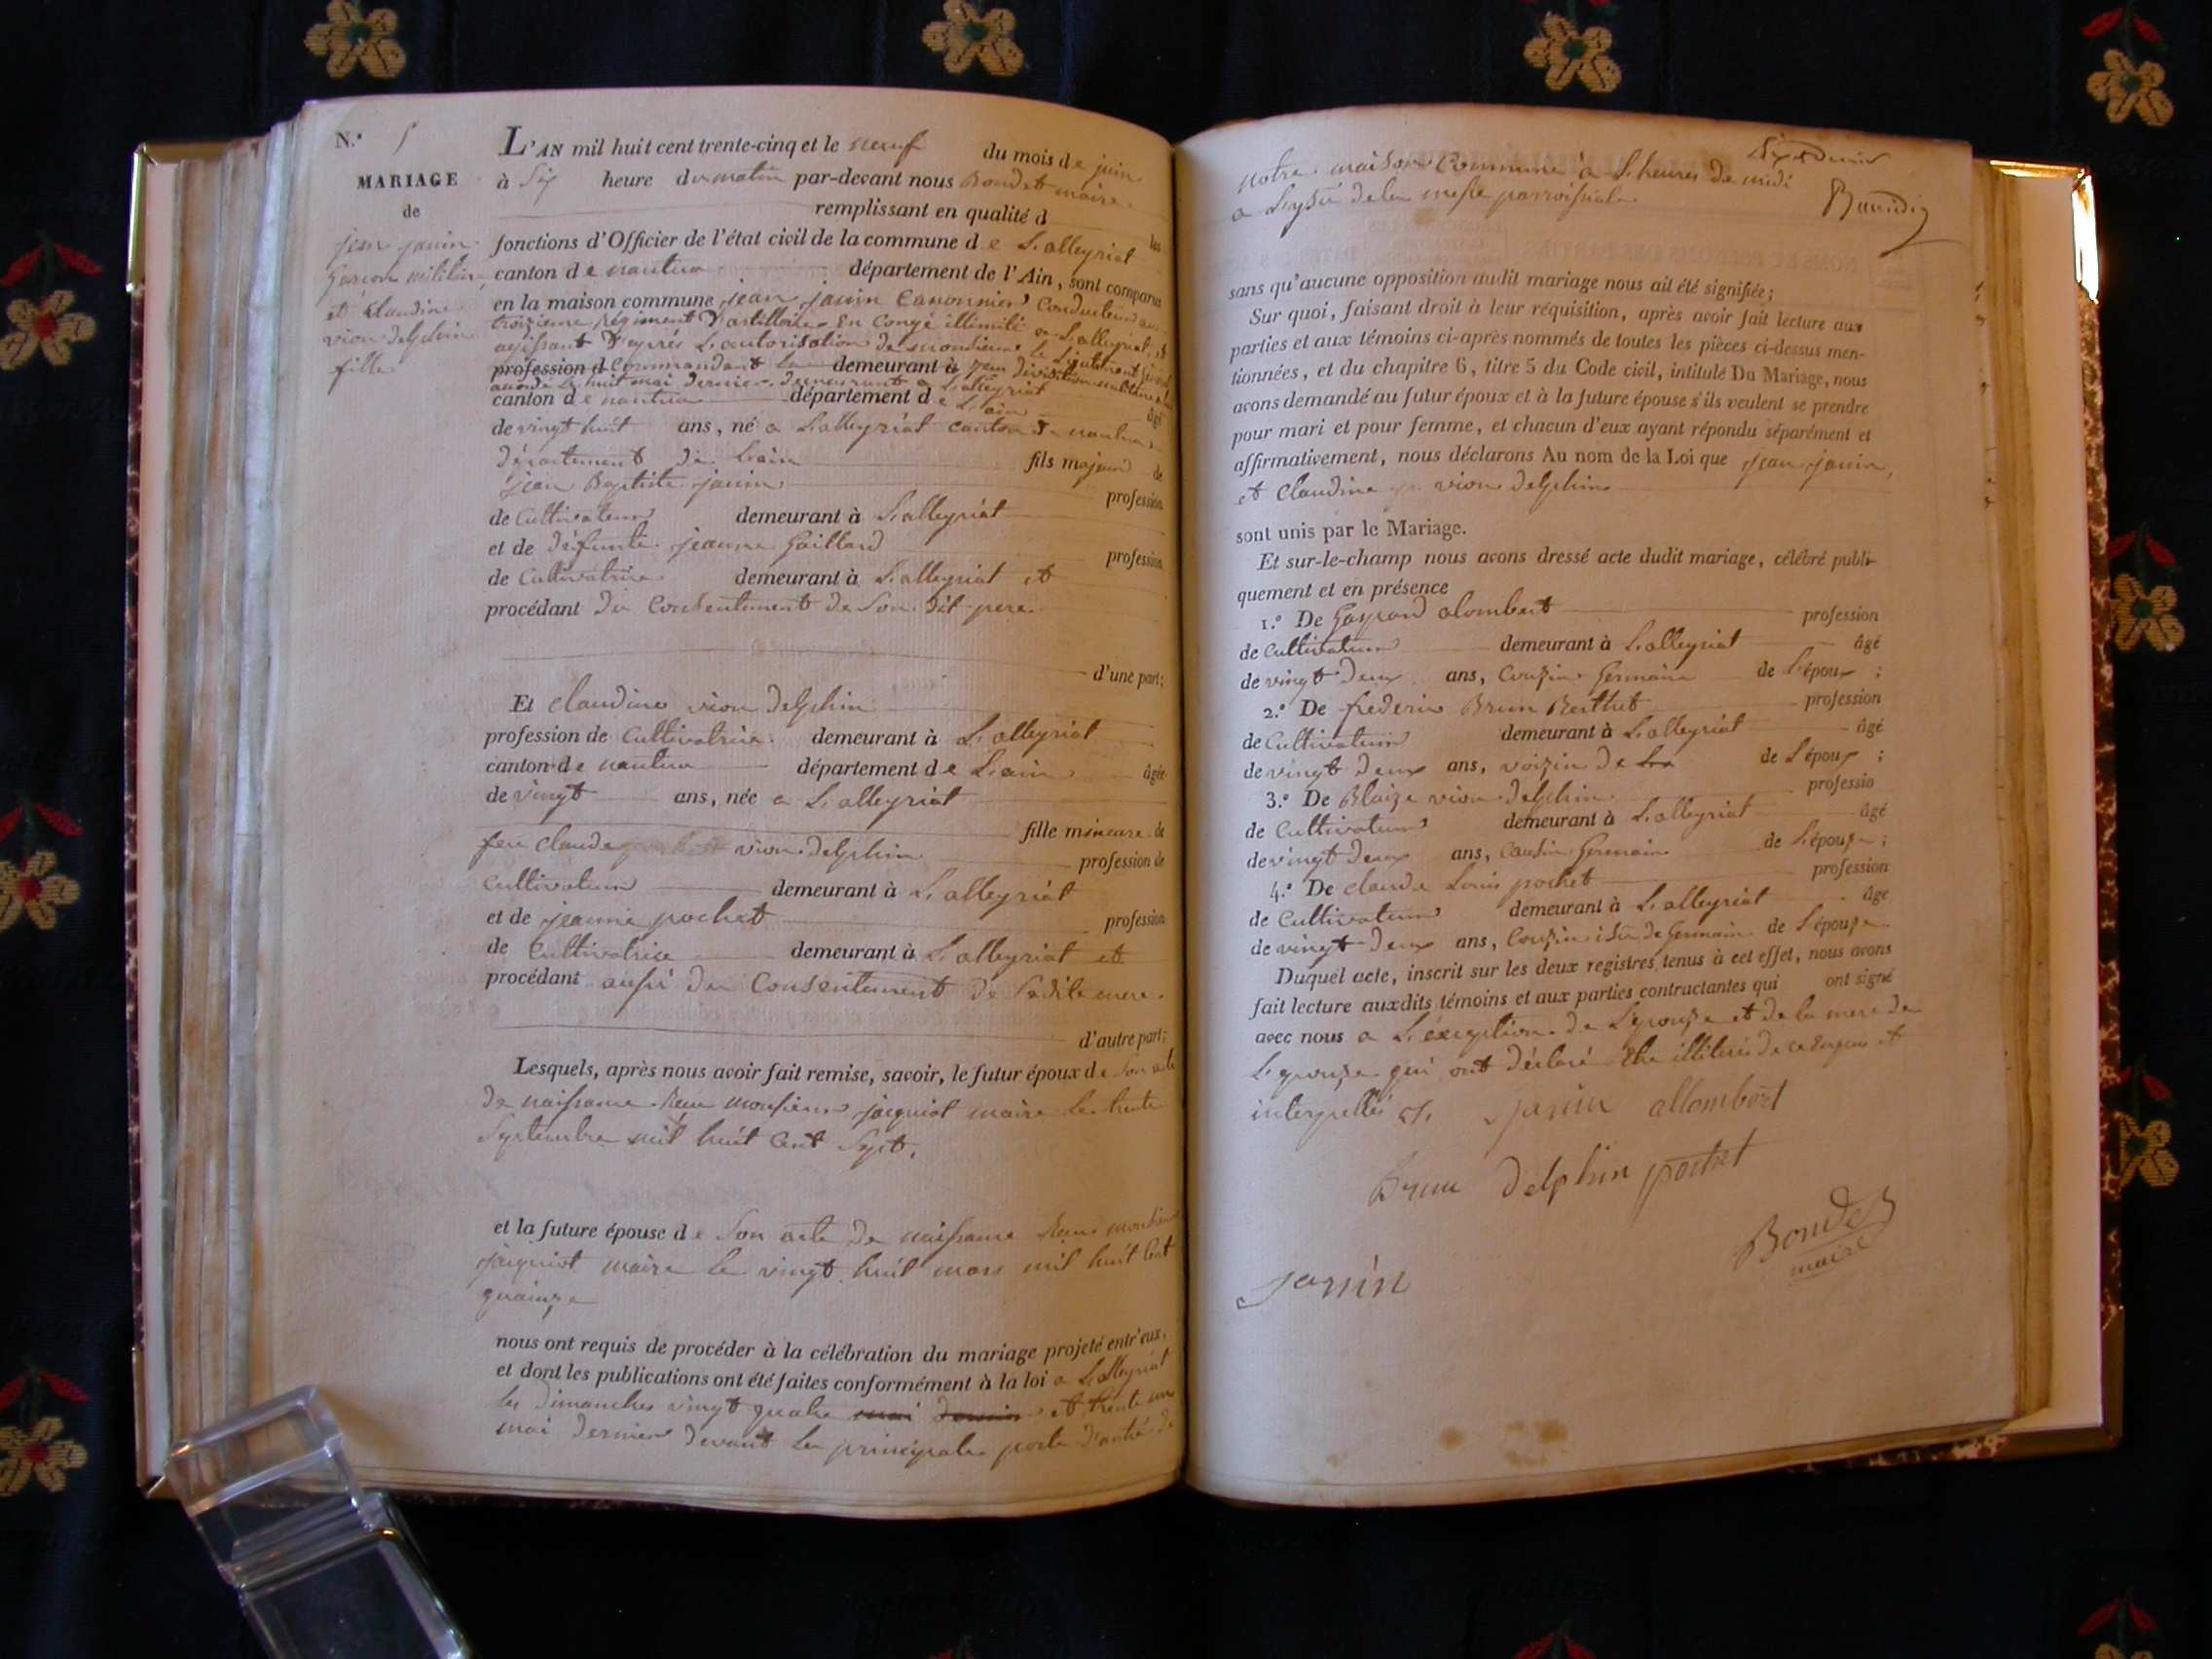 N.° 5
MARIAGE
de
jean janin
Garcon militaire
et Claudine
vion delphin
fille
L'AN mil huit cent trente-cinq et le neuf du mois de juin
à Six heure du matin par-devant nous Bondet maire
remplissant en qualité d les
fonctions d'Officier de l'état civil de la commune de L'alleyriat
canton de nantua département de l'Ain, sont comparus
en la maison commune jean janin Canonnier Conducteur au
troizieme Régiment D'artillerie En Congé illimité a L'alleyriat, et
agissant D'après L'autorisation de monsieur le Lieutenant Général
profession d Commandant la demeurant à 7eme Division militaire
accordé le huit mai dernier. demeurant a L'alleyriat
canton de nantua département de L'ain âgé
de vingt huit ans, né a L'alleyriat canton De nantua
Département De L'ain fils majeur de
jean Baptiste janin profession
de Cultivateur demeurant à L'alleyriat
et de Défunte jeanne Gaillard profession
de Cultivatrice demeurant à L'alleyriat et
procédant Du Consentement De Son Dit pere
d'une part;
Et claudine vion Delphin
profession de Cultivatrice demeurant à L'alleyriat
canton de nantua département de L'ain âgée
de vingt ans, née a L'alleyriat
fille mineure de
feu Claude vion Delphin profession de
Cultivateur demeurant à L'alleyriat
et de jeanne pochet profession
de Cultivatrice demeurant à L'alleyriat et
procédant aussi Du Consentement De Sadite mere
d'autre part;
Lesquels, après nous avoir fait remise, savoir, le futur époux de Son acte
De naissance Reçu monsieur jacquiot maire le trente
Septembre mil huit Cent Sept,
et la future épouse de Son acte De naissance Reçu monsieur
jacquiot maire le vingt huit mars mil huit Cent
quainze
nous ont requis de procéder à la célébration du mariage projeté entr'eux,
et dont les publications ont été faites conformément à la loi a L'alleyriat
les Dimanches vingt quatre mai dernier et trente un
mai Dernier Devant la principale porte D'antré de
notre maison Commune a heures De midi
a L'ysüe de la messe parroissiale
sans qu'aucune opposition audit mariage nous ait été signifiée;
Sur quoi, faisant droit à leur réquisition, après avoir fait lecture aux
parties et aux témoins ci-après nommés de toutes les pièces ci-dessus men-
tionnées, et du chapitre 6, titre 5 du Code civil, intitulé Du Mariage, nous
avons demandé au futur époux et à la future épouse s'ils veulent se prendre
pour mari et pour femme, et chacun d'eux ayant répondu séparément et
affirmativement, nous déclarons Au nom de la Loi que jean janin,
et Claudine vion Delphin
sont unis par le Mariage.
Et sur-le-champ nous avons dressé acte dudit mariage, célébré publi-
quement et en présence
1.° De Gaspard alombert profession
de Cultivateur demeurant à L'alleyriat âgé
de vingt Deux ans, Couzin Germain de L'époux ;
2.° De frederic Brun Berthet profession
de Cultivateur demeurant à L'alleyriat âgé
de vingt Deux ans, voizin De de L'époux ;
3.° De Blaize vion Delphin professio
de Cultivateur demeurant à L'alleyriat âgé
de vingt Deux ans, Cousin Germain de L'épouze ;
4.° De claude Louis pochet profession
de Cultivateur demeurant à L'alleyriat âgé
de vingt Deux ans, Couzin isü de Germain de L'épouze
Duquel acte, inscrit sur les deux registres tenus à cet effet, nous avons
fait lecture auxdits témoins et aux parties contractantes qui ont signé
avec nous a L'éxeption de L'épouze et de la mere de
L'epouze qui ont Déclaré être illiteré de ce Enquis et
interpellés janin allombert
Brun Delphin pochet
Bondet
maire
janin